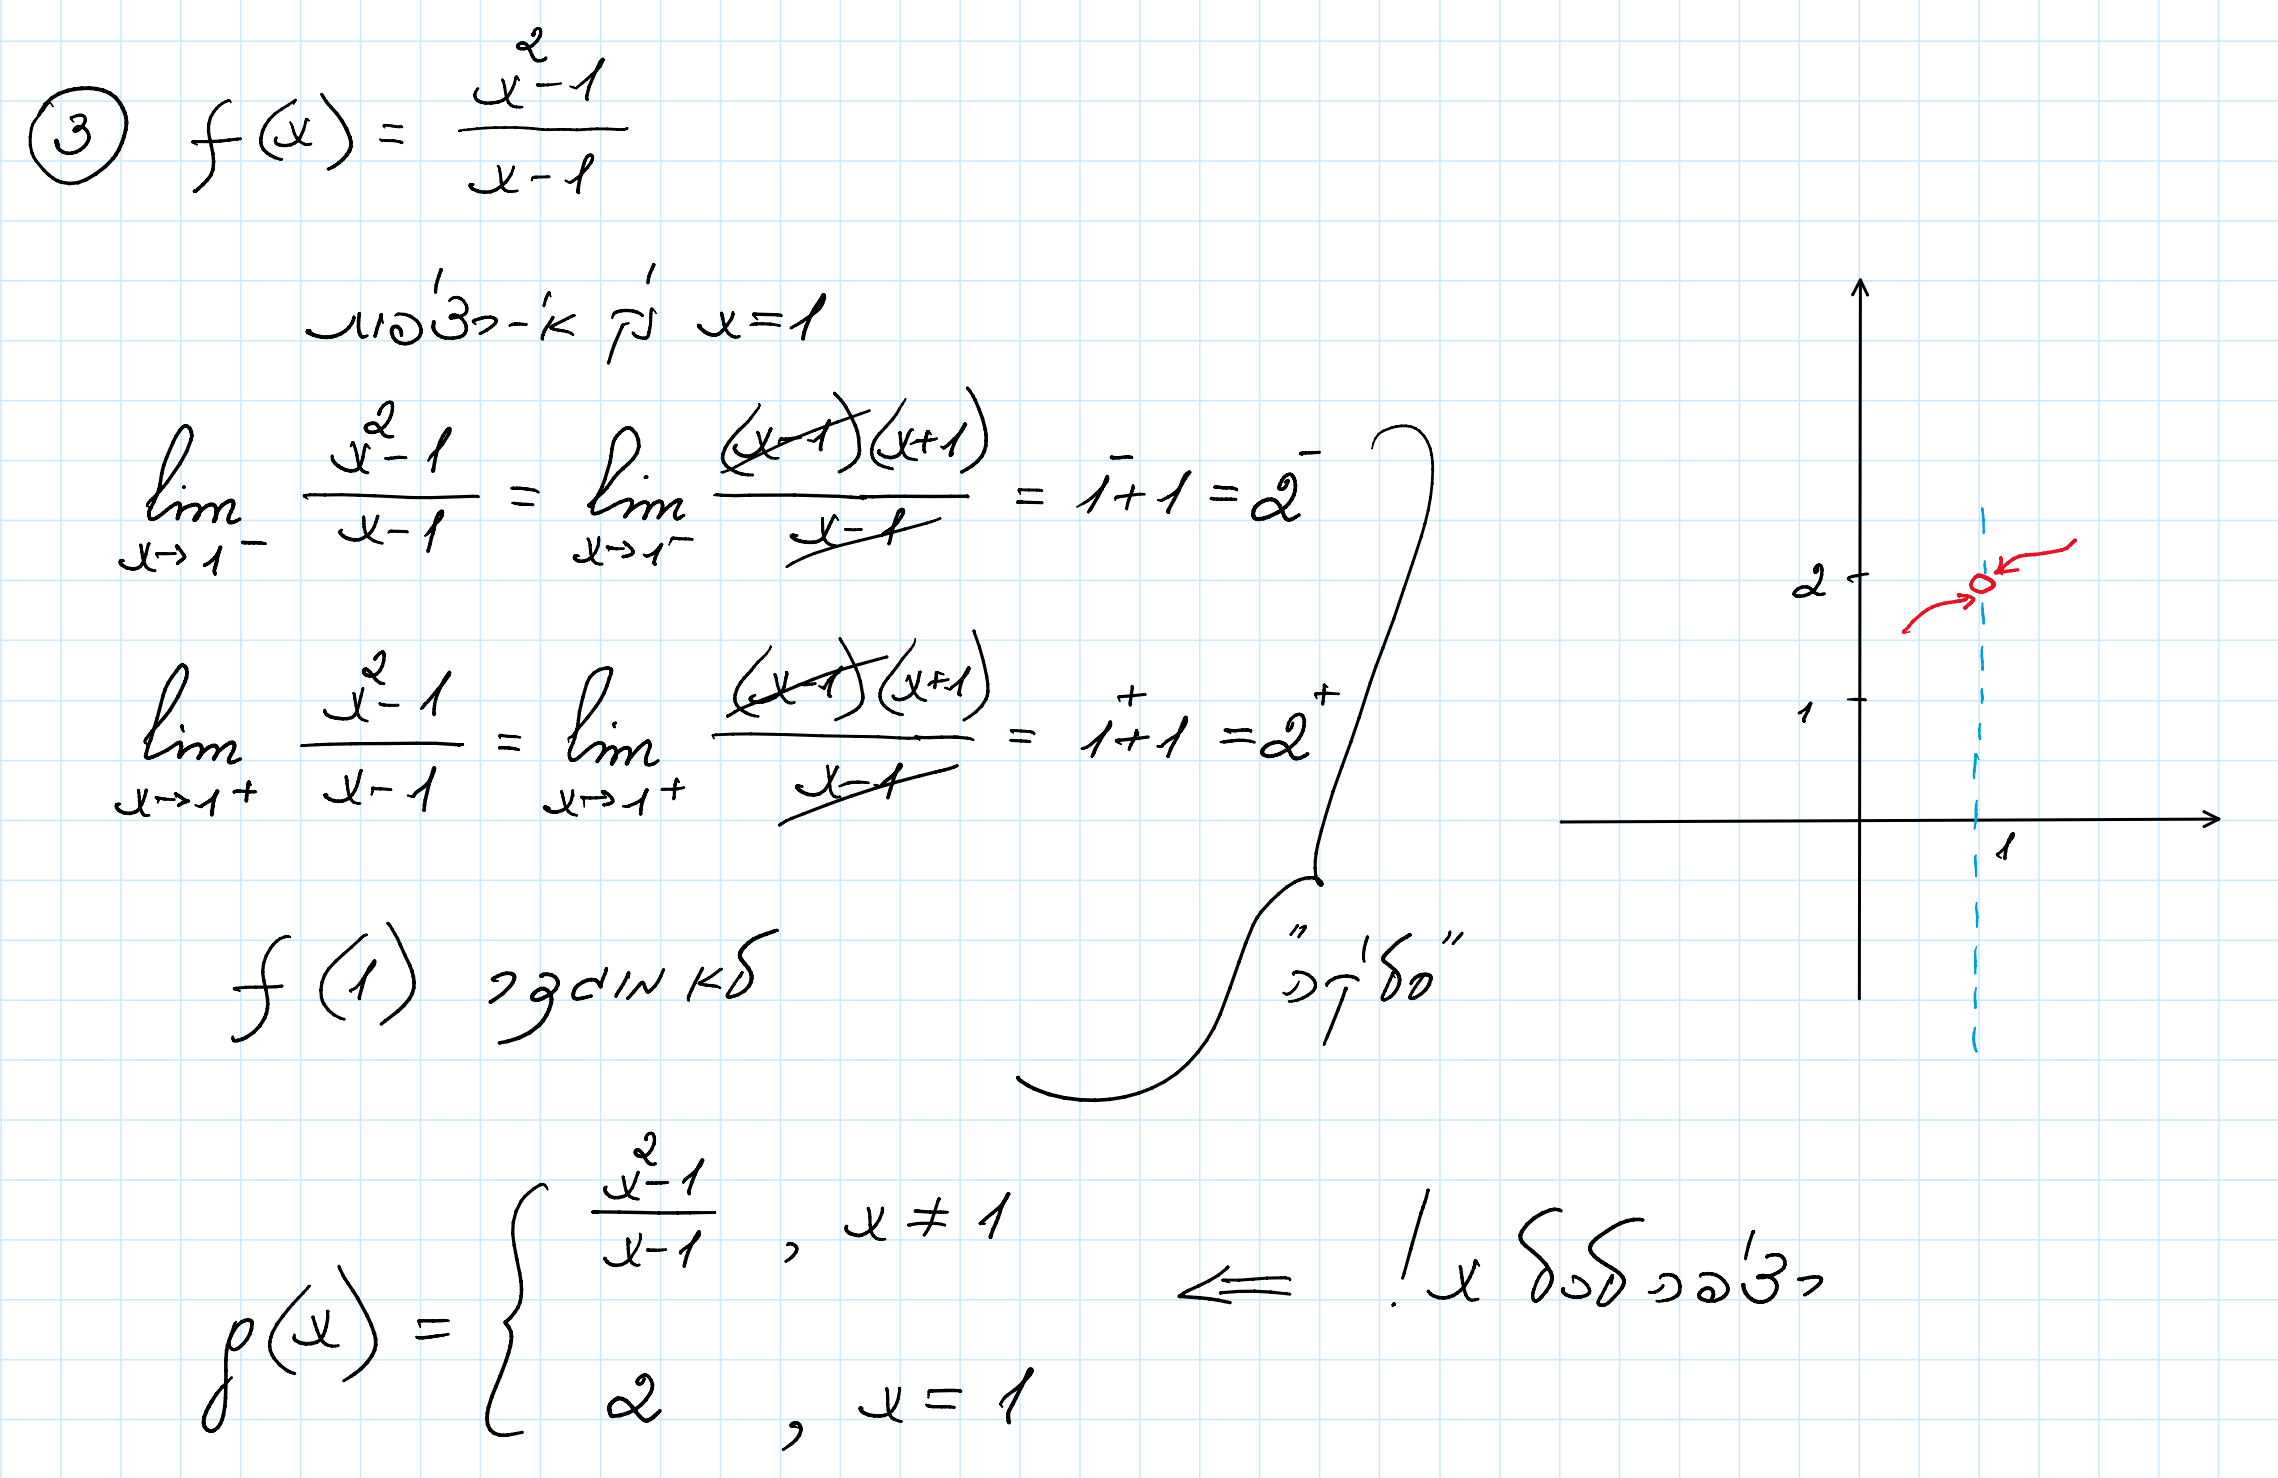 ③ f(x) = \frac{x^2-1}{x-1}
x=1 נק' אי-רציפות
\lim_{x→1^-} \frac{x^2-1}{x-1} = \lim_{x→1^-} \frac{(x-1)(x+1)}{x-1} = 1^- + 1 = 2^-
\lim_{x→1^+} \frac{x^2-1}{x-1} = \lim_{x→1^+} \frac{(x-1)(x+1)}{x-1} = 1^+ + 1 = 2^+
f(1) לא מוגדר
"סליקה"
g(x) = { \frac{x^2-1}{x-1} , x ≠ 1
2 , x = 1
⇐ רציפה לכל x !
2
1
1